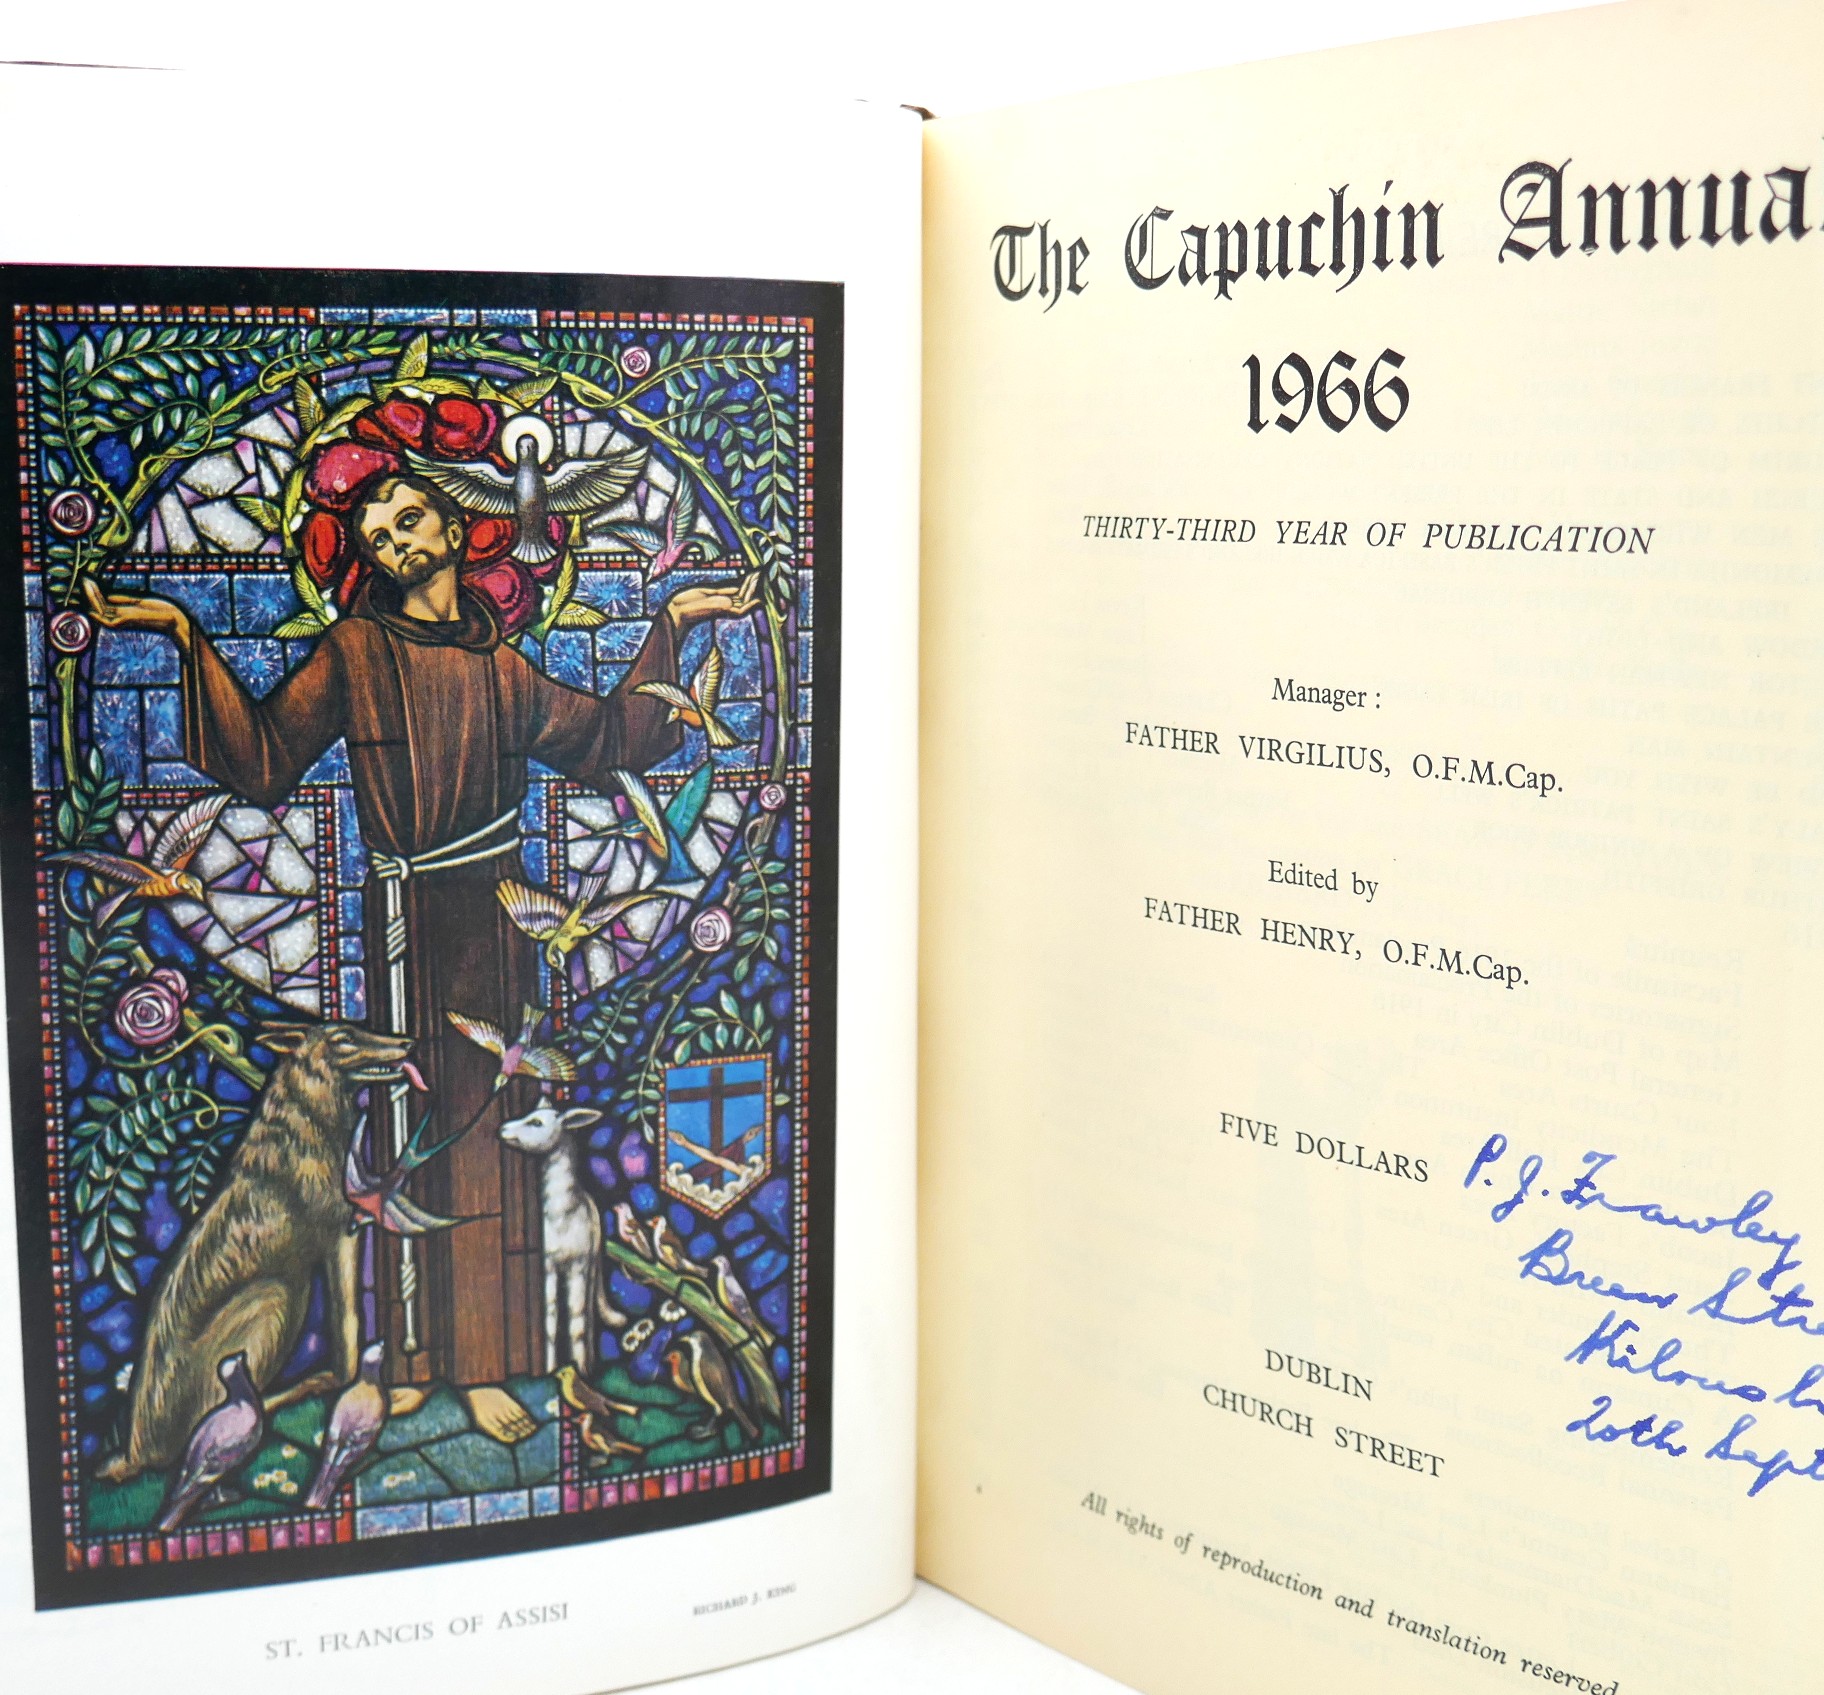 ST. FRANCIS OF ASSISI
RICHARD J. KING
The Capuchin Annual
1966
THIRTY-THIRD YEAR OF PUBLICATION
Manager :
FATHER VIRGILIUS, O.F.M.Cap.
Edited by
FATHER HENRY, O.F.M.Cap.
FIVE DOLLARS
P. J. Frawley
Breen Stre
Kilrush
20th Sept
DUBLIN
CHURCH STREET
All rights of reproduction and translation reserved